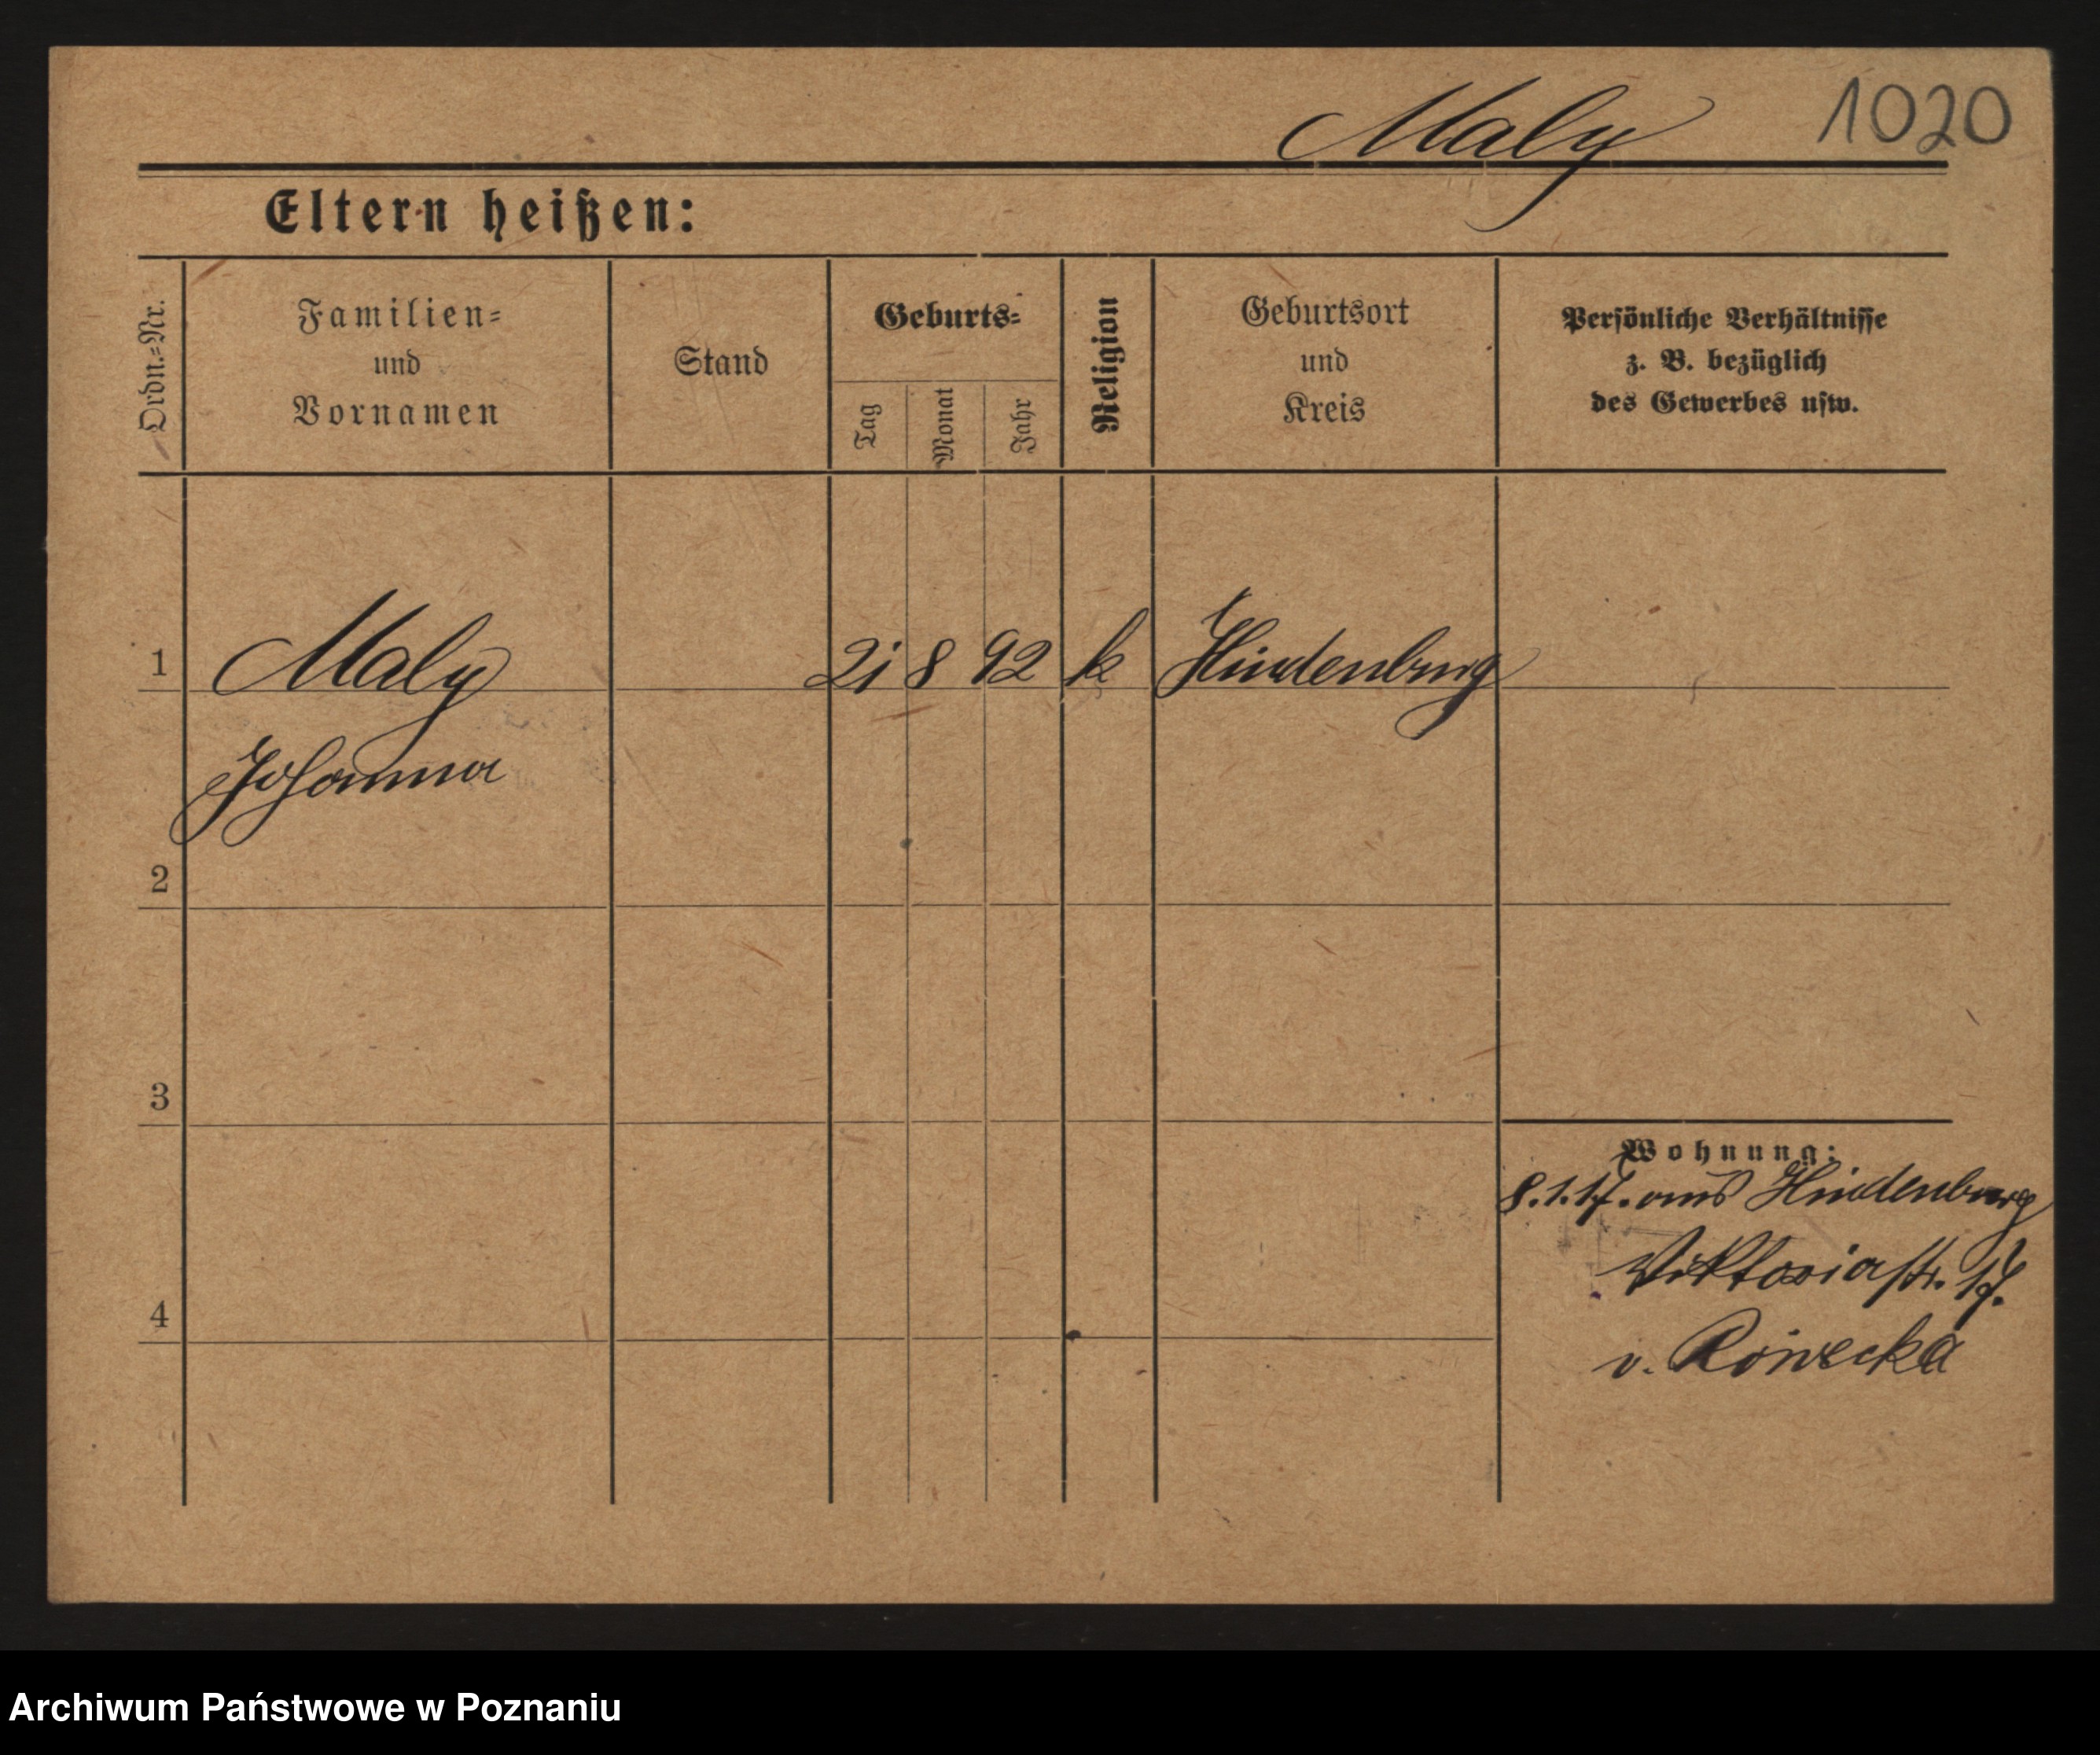 Maly 1020
Eltern heißen:
Ordn.=Nr.
Familien=
und
Vornamen
Stand
Geburts=
Tag
Monat
Jahr
Religion
Geburtsort
und
Kreis
Persönliche Verhältnisse
z. B. bezüglich
des Gewerbes usw.
1 Maly 21 8 92 k Hindenburg
Johanna
2
3
Wohnung:
8.1.17. aus Hindenburg
Viktoriastr. 17.
4
v. Rówecka
Archiwum Państwowe w Poznaniu